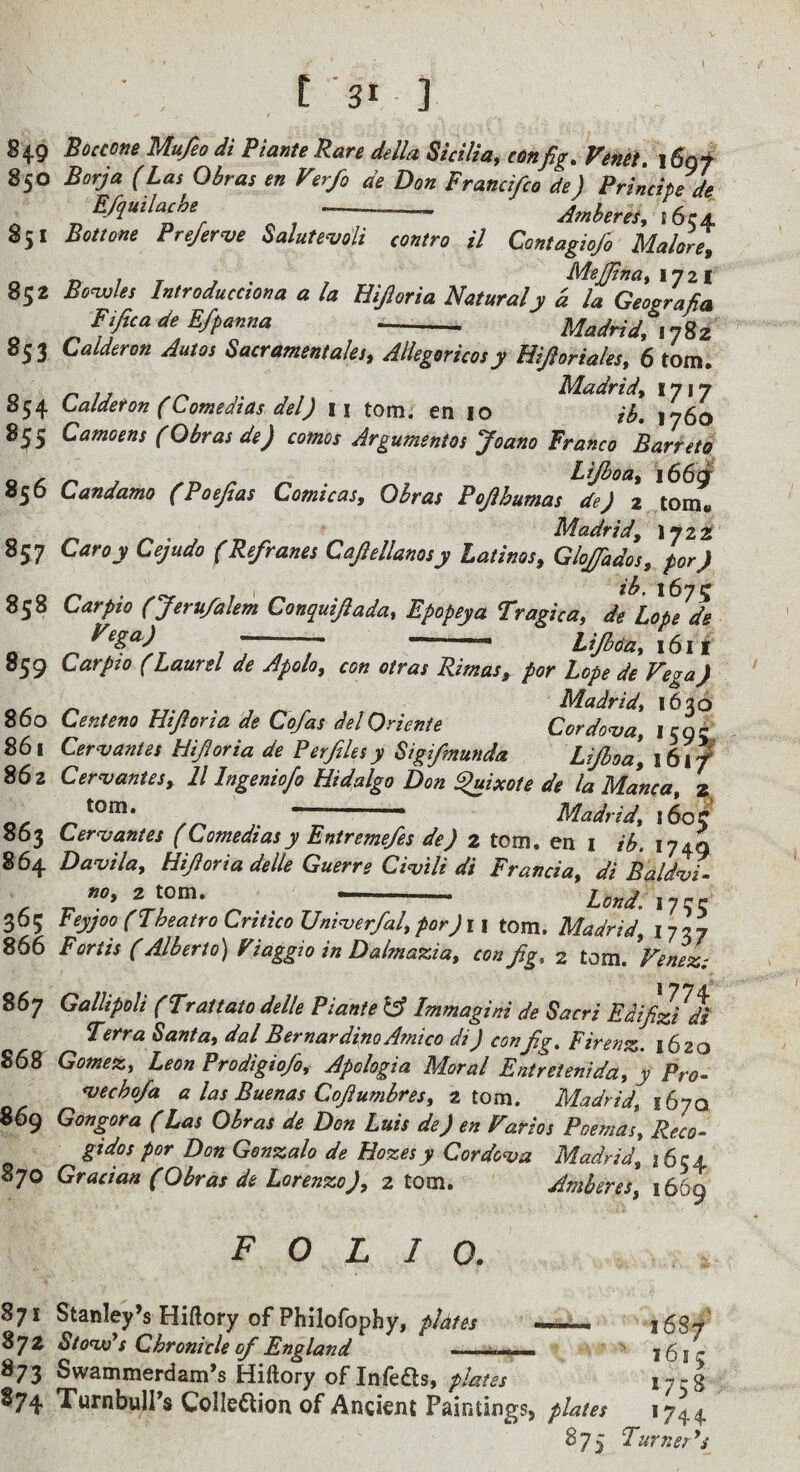 [ 31 ]
849 Boccone Muſeo di Piante Rare della Sicilia, con fig. Venet. 1697
850 Borja (Las Obras en Verſo de Don Franciſco de) Principe de
Eſquilache ——— Amberes, 1654
851 Bottone Preſerve Salutevoli contro il Contagioſo Malore,
Meſſina, 1721
852 Bowles Introducciona a la Hiſtoria Natural y á la Geografia
Fiſica de Eſpanna ——— Madrid, 1782
853 Calderon Autos Sacramentales, Allegoricos y Hiſtoriales, 6 tom.
Madrid, 1717
854 Calderon (Comedias del) 11 tom. en 10 ib. 1760
855 Camoens (Obras de) comos Argumentos Joano Franco Barreto
Liſboa, 1669
856 Candamo (Poeſias Comicas, Obras Poſthumas de) 2 tom.
Madrid, 1722
857 Caro y Cejudo (Refranes Caſtellanos y Latinos, Gloſſados, por)
ib. 1675
858 Carpio (Jeruſalem Conquiſtada, Epopeya Tragica, de Lope de
Vega) ——— ——— Liſboa, 1611
859 Carpio (Laurel de Apolo, con otras Rimas, por Lope de Vega)
Madrid, 1630
860 Centeno Hiſtoria de Coſas del Oriente Cordova, 1595
861 Cervantes Hiſtoria de Perſiles y Sigiſmunda Liſboa, 1617
862 Cervantes, Il Ingenioſo Hidalgo Don Quixote de la Manca, 2
tom. ——— Madrid, 1605
863 Cervantes (Comedias y Entremeſes de) 2 tom. en 1 ib. 1749
864 Davila, Hiſtoria delle Guerre Civili di Francia, di Baldvi-
no, 2 tom. ——— Lond. 1755
365 Feyjoo (Theatro Critico Univerſal, por) 11 tom. Madrid, 1737
866 Fortis (Alberto) Viaggio in Dalmazia, con fig. 2 tom. Venez.
1774
867 Gallipoli (Trattato delle Piante & Immagini de Sacri Edifizi di
Terra Santa, dal Bernardino Amico di) con fig. Firenz. 1620
868 Gomez, Leon Prodigioſo, Apologia Moral Entretenida, y Pro-
vechoſa a las Buenas Coſtumbres, 2 tom. Madrid, 1670
869 Gongora (Las Obras de Don Luis de) en Varios Poemas, Reco-
gidos por Don Gonzalo de Hozes y Cordova Madrid, 1654
870 Gracian (Obras de Lorenzo), 2 tom. Amberes, 1669
FOLIO.
871 Stanley's Hiſtory of Philoſophy, plates —— 1687
872 Stow's Chronicle of England ——— 1615
873 Swammerdam's Hiſtory of Inſects, plates 1758
874 Turnbull's Collection of Ancient Paintings, plates 1744
875 Turner's